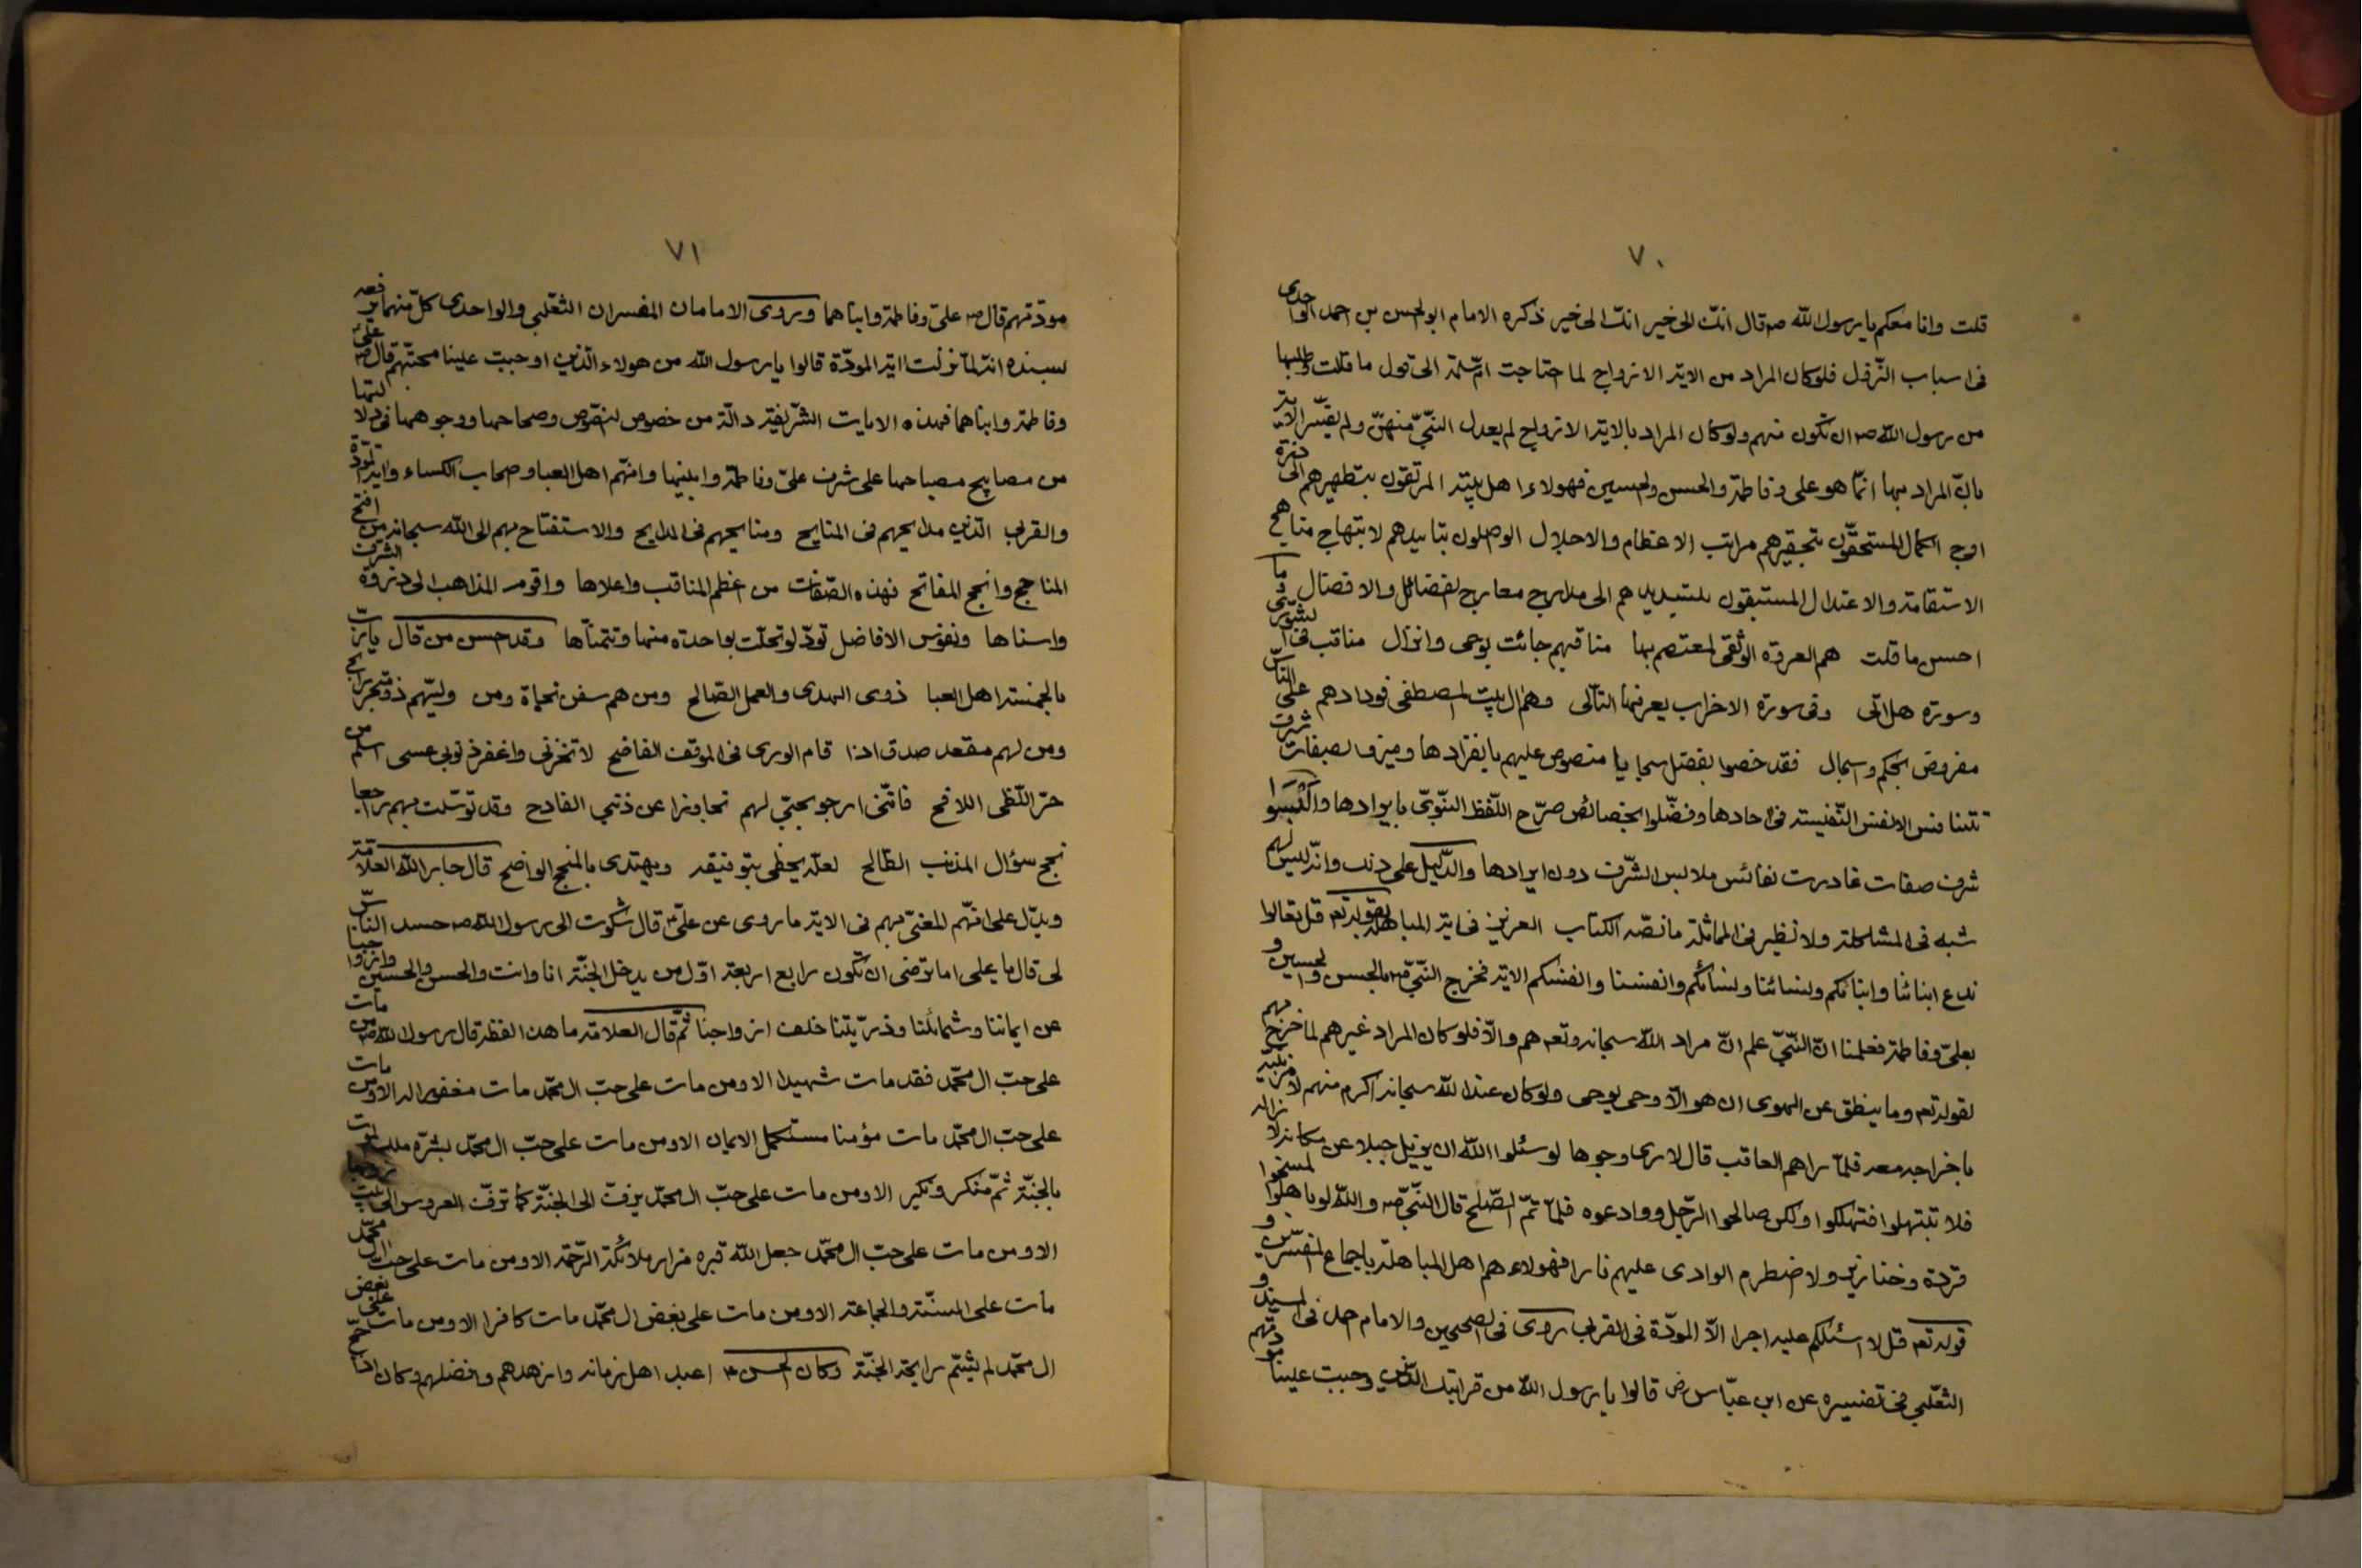 ٧٠
قلت وانا معكم يا رسول الله ص قال انك الى خير انك الى خير ذكره الامام ابو الحسن بن احمد الواحدى
فى اسباب النزول فلو كان المراد من الاية الازواج لما احتاجت ام سلمة الى قول ما قلت وطلبها
من رسول الله ص ان تكون منهم ولو كان المراد بالاية الازواج لم يعدل النبى منهن ولم يفسر الاية
بان المراد بها انما هو على وفاطمة والحسن والحسين فهولاء اهل بيته المرتقون بتطهيرهم الى ذروة
اوج الكمال المستحقون بتحقيرهم مراتب الاعظام والاجلال الواصلون بتاييدهم لابتهاج مناهج
الاستقامة والاعتدال المستبقون بتسديدهم الى مدارج معارج الفضائل والافضال وما
احسن ما قلت هم العروة الوثقى لمعتصم بها مناقبهم جائت بوحى وانزال مناقب فى الشورى
وسورة هل اتى وفى سورة الاحزاب يعرفها التالى وهم ال بيت المصطفى فودادهم على الناس
مفروض بحكم واسجال فقد خصوا بفضل سجايا منصوص عليهم بانفرادها وميزوا بصفات شرف
تتنافس الانفس النفيسة فى احادها وفضلوا بخصائص صرح اللفظ النبوى بايرادها واكتسوا
شرف صفات غادرت نفائس ملابس الشرف دون ايرادها والدليل على ذلك وانه ليس لهم
شبه فى المشاكلة ولا نظير فى المماثلة ما نصه الكتاب العزيز فى اية المباهلة بقوله تعه قل تعالوا
ندع ابنائنا وابنائكم ونسائنا ونسائكم وانفسنا وانفسكم الاية فخرج النبى ص بالحسن والحسين و
بعلى وفاطمة فعلمنا ان النبى علم ان مراد الله سبحانه وتعه هم والا فلو كان المراد غيرهم لما خرج بهم
لقوله تعه وما ينطق عن الهوى ان هو الا وحى يوحى ولو كان عند الله سبحانه اكرم منهم لامر نبيه
باخراجه معه فلما راهم العاقب قال لارى وجوها لو سئلوا الله ان يزيل جبلا عن مكانه لازاله
فلا تبتهلوا فتهلكوا ولكن صالحوا الرجل ووادعوه فلما تم الصلح قال النبى ص والله لو باهلوا لمسخوا
قردة وخنازير ولاضطرم الوادى عليهم نارا فهولاء هم اهل المباهلة باجماع المفسرين و
قوله تعه قل لا اسئلكم عليه اجرا الا المودة فى القربى روى فى الصحيحين والامام احمد فى المسند و
الثعلبى فى تفسيره عن ابن عباس رض قالوا يا رسول الله من قرابتك الذين وجبت علينا مودتهم
٧١
مودتهم قال ص على وفاطمة وابناهما وروى الامامان المفسران الثعلبى والواحدى كل منهما يرفعه
بسنده انه لما نزلت اية المودة قالوا يا رسول الله من هولاء الذين اوجبت علينا محبتهم قال ص على
وفاطمة وابناهما فهذه الايات الشريفة دالة من خصوص النصوص وصحاحها ووجوهها فى دلالتها
من مصابيح مصباحها على شرف على وفاطمة وابنيها وانهم اهل العبا وصحاب الكساء واية المودة
والقربى الذين مدايحهم فى المنايح ومنايحهم فى المدايح والاستفتاح بهم الى الله سبحانه من افتح
المناجح وانجح المفاتح فهذه الصفات من اعظم المناقب واعلاها واقوم المذاهب الى ذروة الشرف
واسناها ونفوس الافاضل تود لو تحلت بواحدة منها وتتمناها وقد احسن من قال يا رب
بالخمسة اهل العبا ذوى الهدى والعمل الصالح ومن هم سفن نجاة ومن وليهم ذو متجر رابح
ومن لهم مقعد صدق اذا قام الورى فى الموقف الفاضح لا تخزنى واغفر ذنوبى عسى اسلم من
حر اللظى اللافح فاننى ارجو بحبى لهم تجاوزا عن ذنبى الفادح وقد توسلت بهم راجعا
نجح سؤال المذنب الطالح لعله يحظى بتوفيقه ويهتدى بالمنهج الواضح قال جابر الله العلامة
ويدل على انهم المغنى بهم فى الاية ما روى عن على قال شكوت الى رسول الله ص حسد الناس
لى قال يا على اما ترضى ان تكون رابع اربعة اول من يدخل الجنة انا وانت والحسن والحسين وازواجنا
عن ايماننا وشمائلنا وذريتنا خلف ازواجنا ثم قال العلامة ما هذا لفظه قال رسول الله ص من مات
على حب ال محمد فقد مات شهيدا الا ومن مات على حب ال محمد مات مغفورا له الا ومن مات
على حب ال محمد مات مؤمنا مستكمل الايمان الا ومن مات على حب ال محمد بشره ملك الموت
بالجنة ثم منكر ونكير الا ومن مات على حب ال محمد يزف الى الجنة كما تزف العروس الى بيت زوجها
الا ومن مات على حب ال محمد جعل الله قبره مزار ملائكة الرحمة الا ومن مات على حب ال محمد
مات على السنة والجماعة الا ومن مات على بغض ال محمد مات كافرا الا ومن مات على بغض
ال محمد لم يشم رايحة الجنة وكان الحسن اعبد اهل زمانه وازهدهم وافضلهم وكان اذا حج